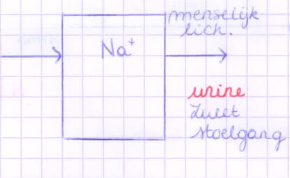 menselijk
lich.
Na⁺
urine
zweet
stoelgang